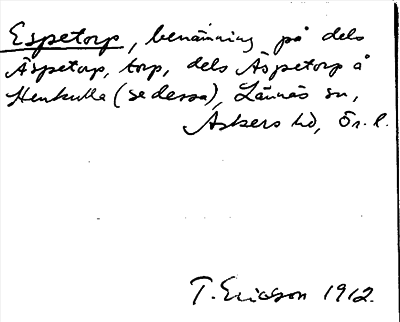 Espetorp, benämning på dels
Äspetorp, torp, dels Äspetorp å
Stenkulla (se dessa), Lännäs sn,
Askers hd, Ör. l.
T. Ericson 1912.